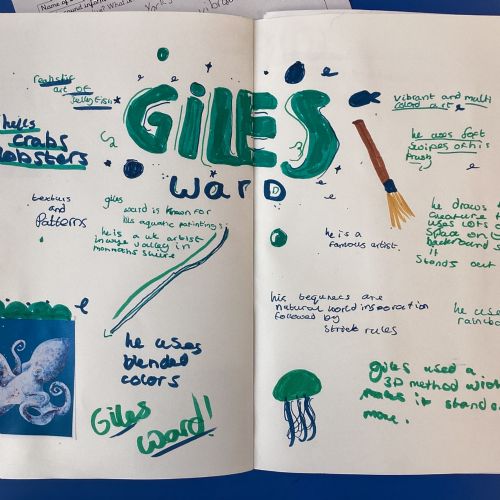 GiLES
WARD
realistic
art of
Jellyfish
shells
crabs
lobsters
texturs
and
Patterns
giles
ward is known for
his aquatic paintings
he is a uk artist
in wye valley in
monmoths shire
he uses
blended
colors
Giles
Ward!
vibrant and multi
colord art
he uses soft
swipes of his
brush
he draws
creature
uses lots of
space on
background
it
Stands out
he is a
famous artist.
his tequneces are
natural world insporation
followed by
Strick rules
he uses
rainbow
giles used a
3D method wich
makes it stand out
more.